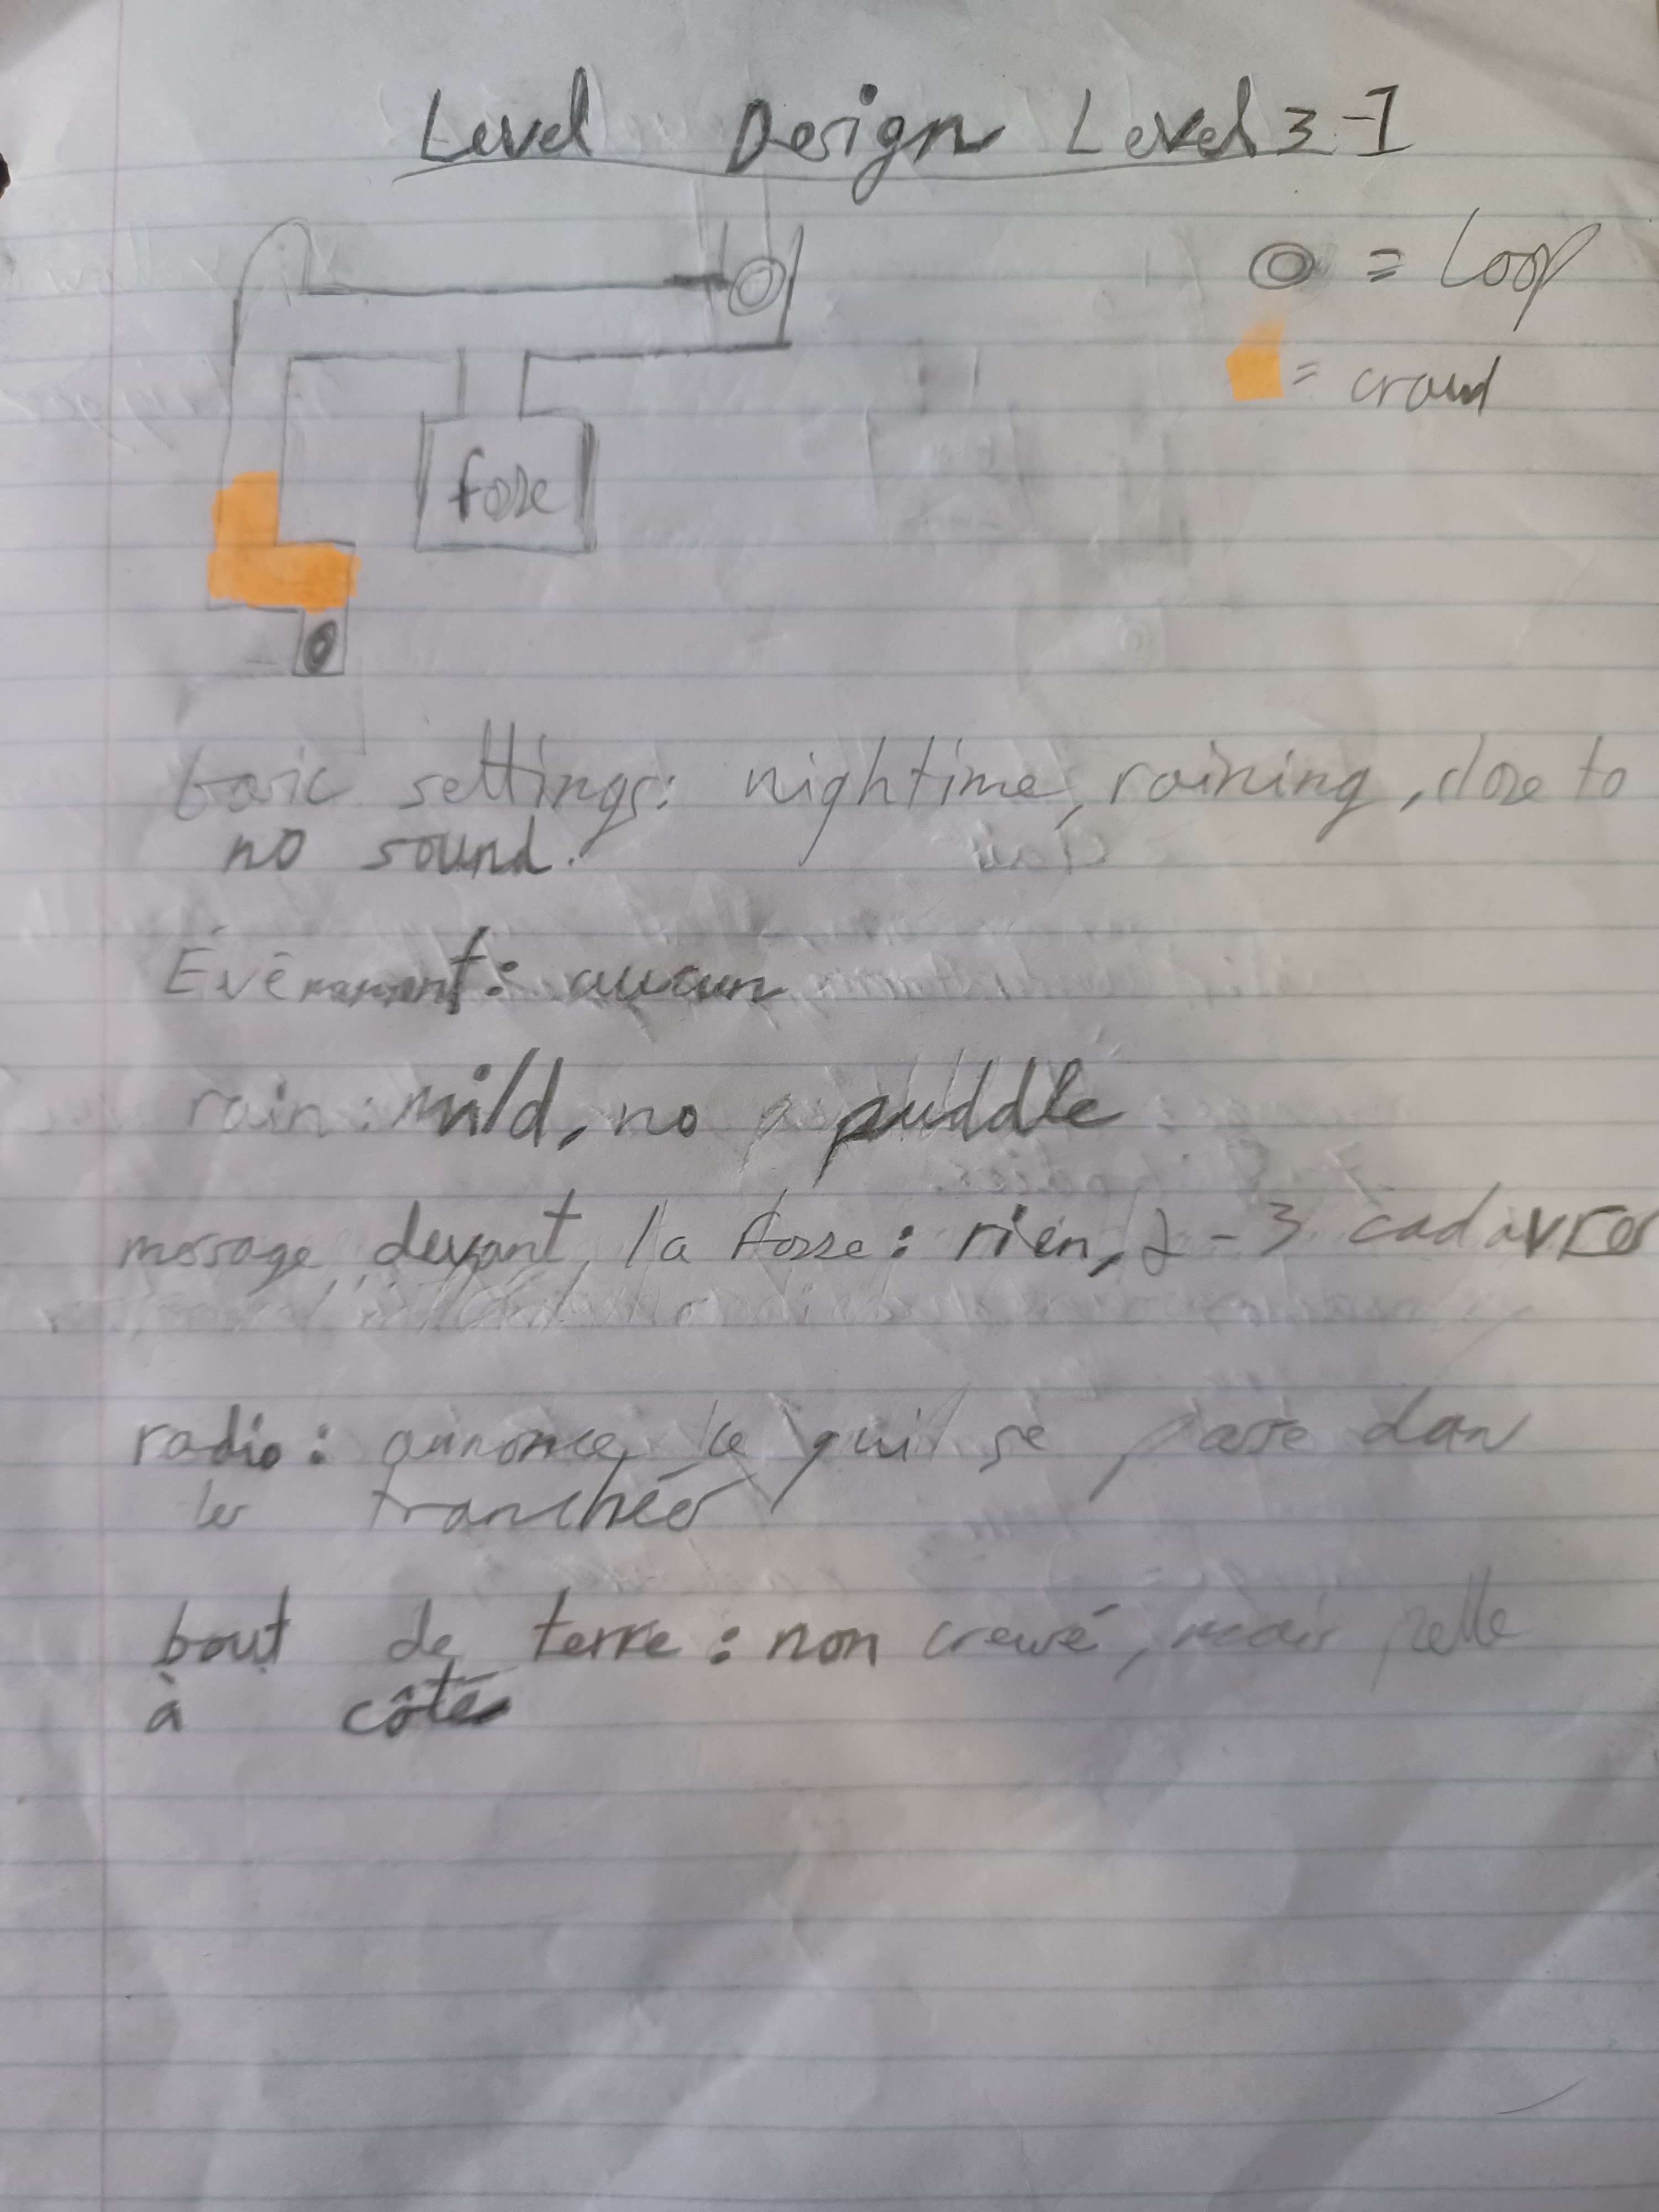 Level Design Level 3-1
= Loop
= crawl
fosse
basic settings: nightime, raining, close to
no sound.
Évènement: aucun
rain: mild, no puddle
message devant la fosse: rien, 2-3 cadavres
radio: annonce ce qui se passe dans
les tranchées
bout de terre: non creusé, mais pelle
à côté